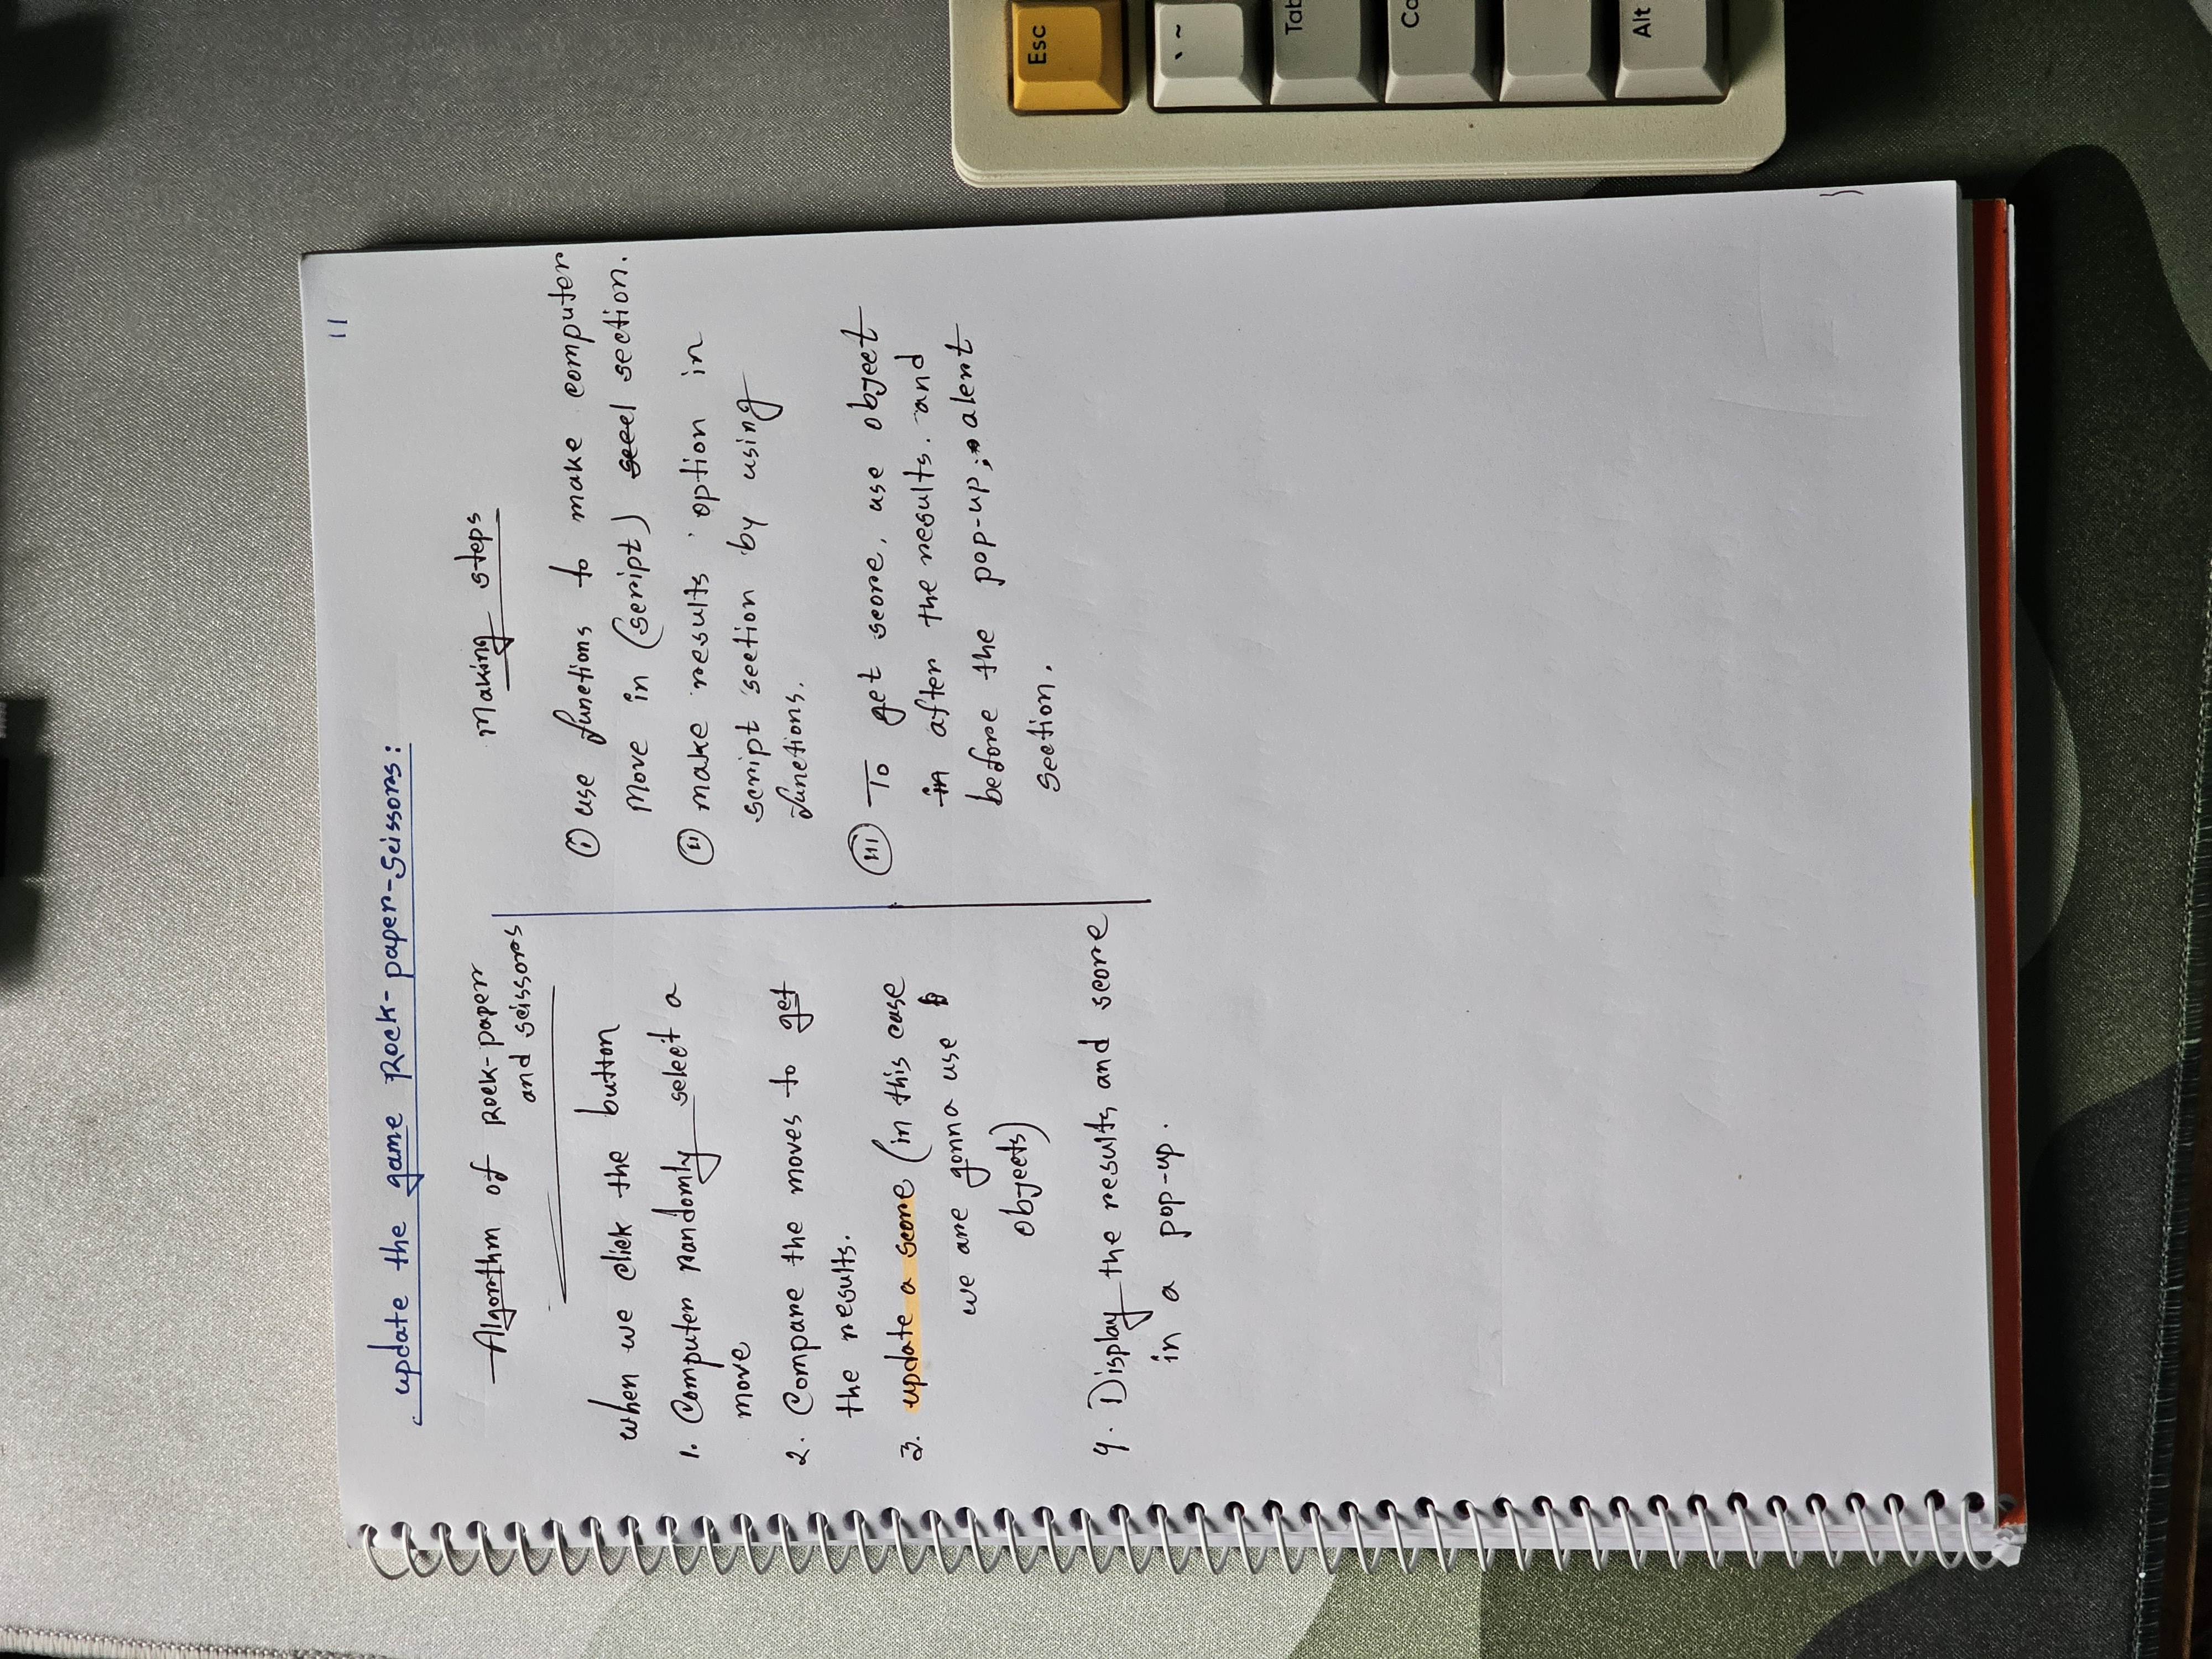 11
update the game Rock-paper-Scissors:
Algorithm of Rock-paper
and scissors
when we click the button
1. Computer randomly select a
move
2. Compare the moves to get
the results.
3. update a score (in this case
we are gonna use
objects)
4. Display the results and score
in a pop-up.
Making steps
(i) use functions to make computer
move in (script) section.
(ii) make results option in
script section by using
functions.
(iii) To get score, use object
in after the results. and
before the pop-up; alert
section.
Esc
` ~
Tab
Ca
Alt